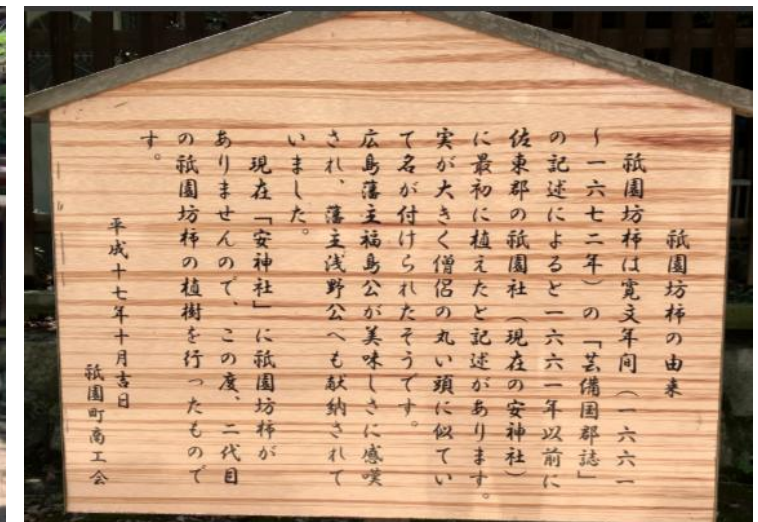 祇園坊柿の由来
祇園坊柿は寛文年間（一六六一
～一六七二年）の「芸備国郡誌」
の記述によると一六六一年以前に
佐東郡の祇園社（現在の安神社）
に最初に植えたと記述があります。
実が大きく僧侶の丸い頭に似てい
て名が付けられたそうです。
広島藩主福島公が美味しさに感嘆
され、藩主浅野公へも献納されて
いました。
現在「安神社」に祇園坊柿が
ありませんので、この度、二代目
の祇園坊柿の植樹を行ったもので
す。
平成十七年十月吉日
祇園町商工会